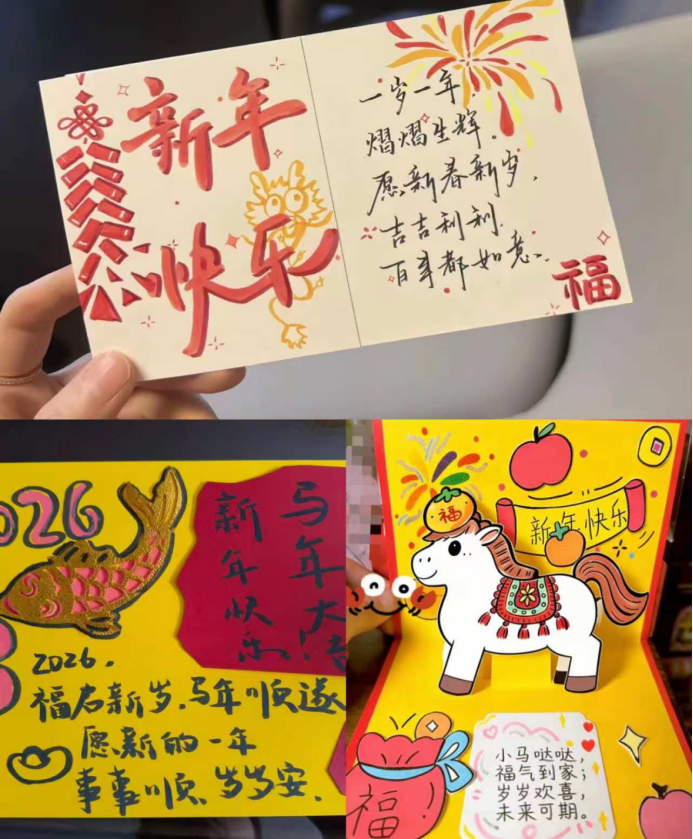 新年
快乐
一岁一年,
熠熠生辉.
愿新春新岁,
吉吉利利.
百事都如意.
福
2026
马年大吉
新年快乐
2026.
福启新岁.马年顺遂
愿新的一年
事事顺.岁岁安.
福
新年快乐
小马哒哒,
福气到家;
岁岁欢喜,
未来可期。
福